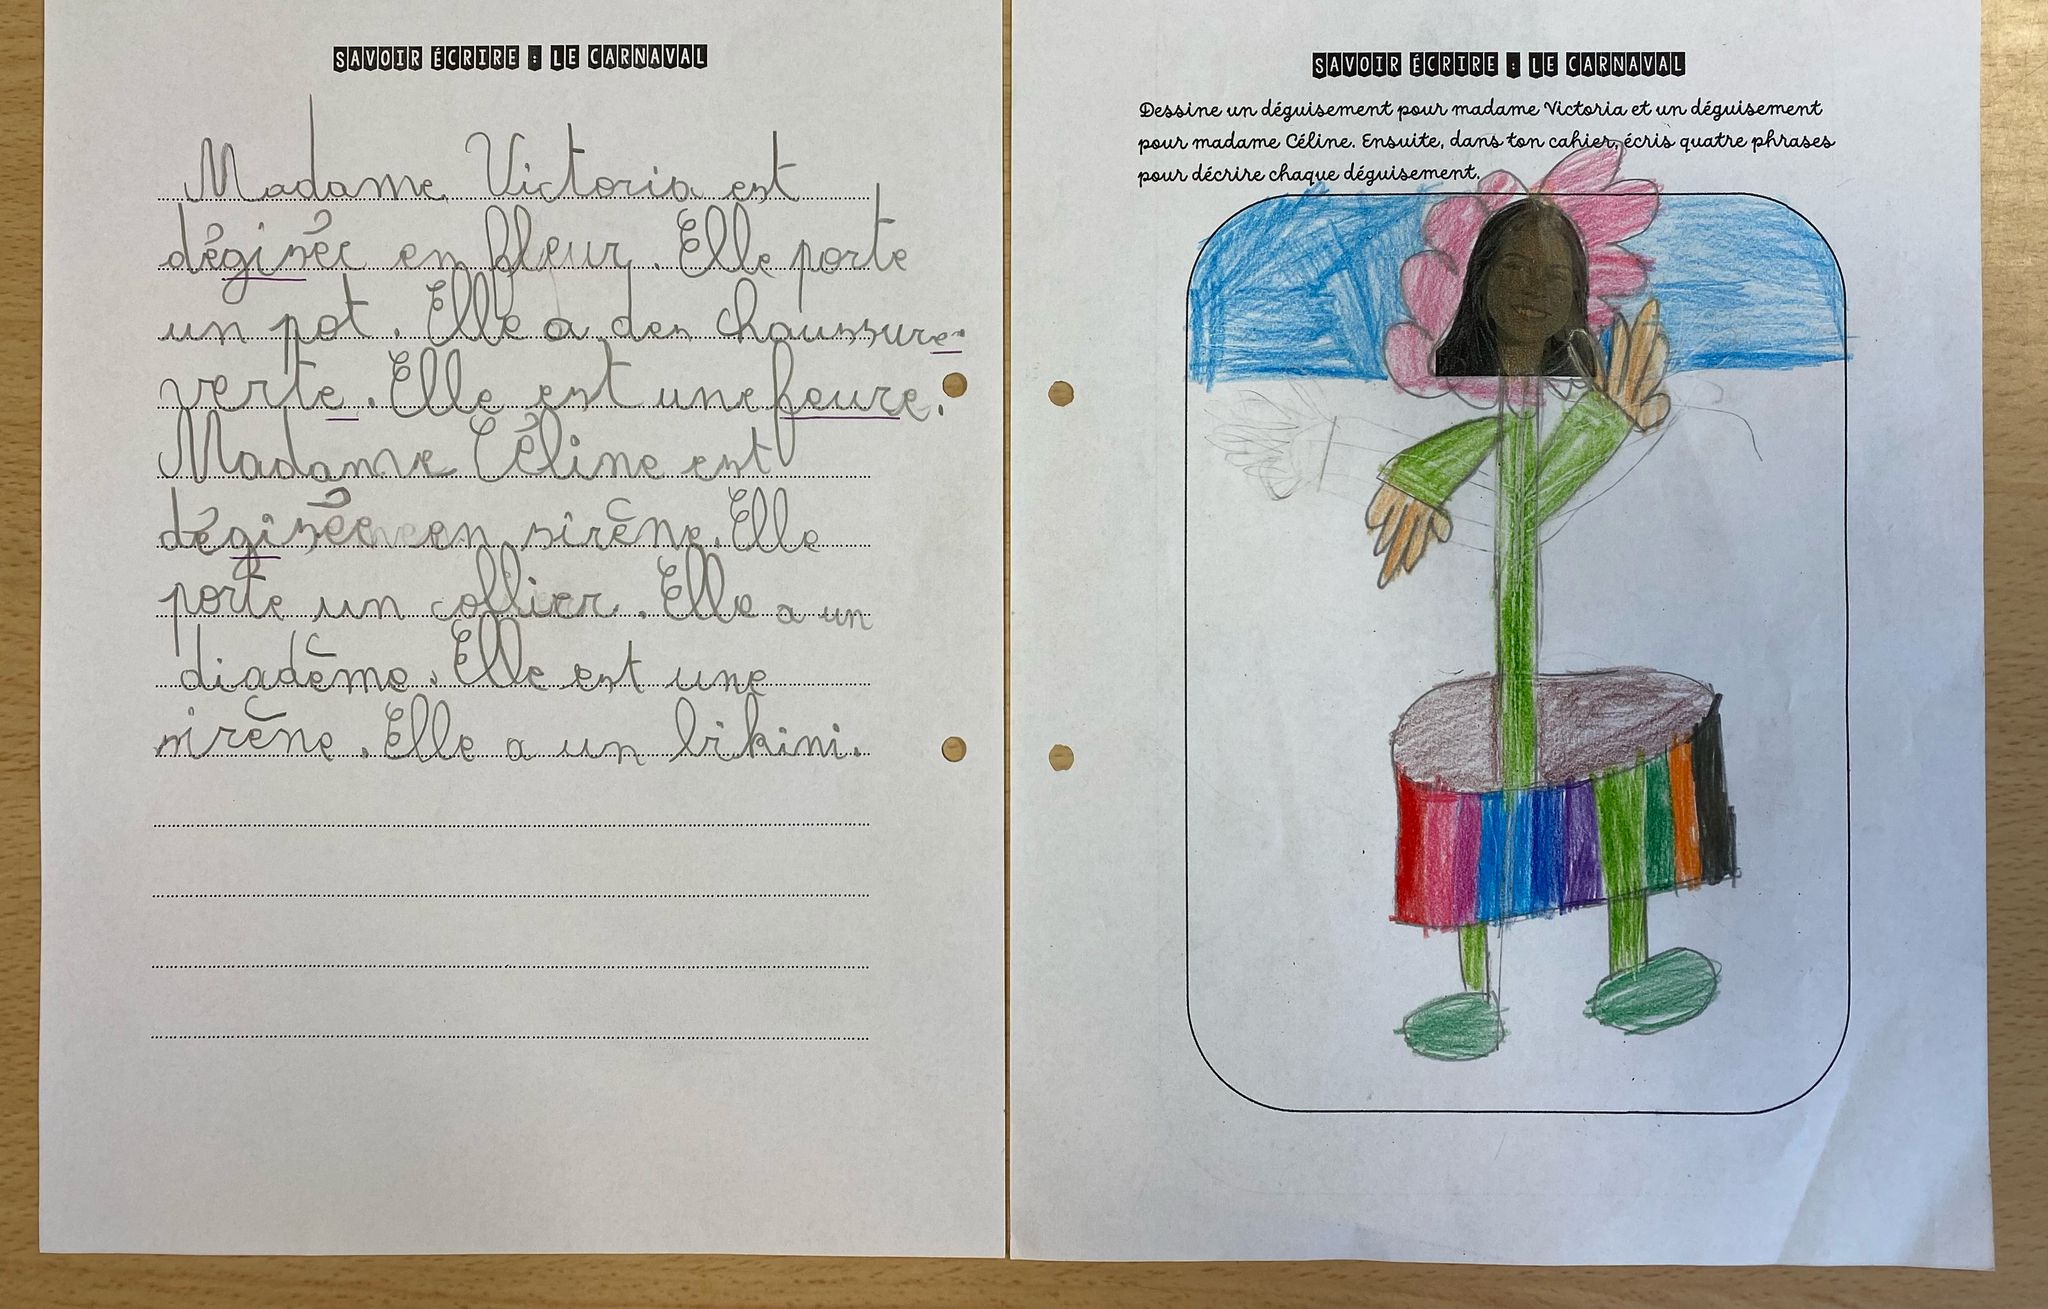 SAVOIR ÉCRIRE : LE CARNAVAL
Madame Victoria est
dégisée en fleur. Elle porte
un pot. Elle a des chaussure
verte. Elle est une feure.
Madame Céline est
dégisée en sirène. Elle
porte un collier. Elle a un
diadème. Elle est une
sirène. Elle a un bikini.
SAVOIR ÉCRIRE : LE CARNAVAL
Dessine un déguisement pour madame Victoria et un déguisement
pour madame Céline. Ensuite, dans ton cahier, écris quatre phrases
pour décrire chaque déguisement.